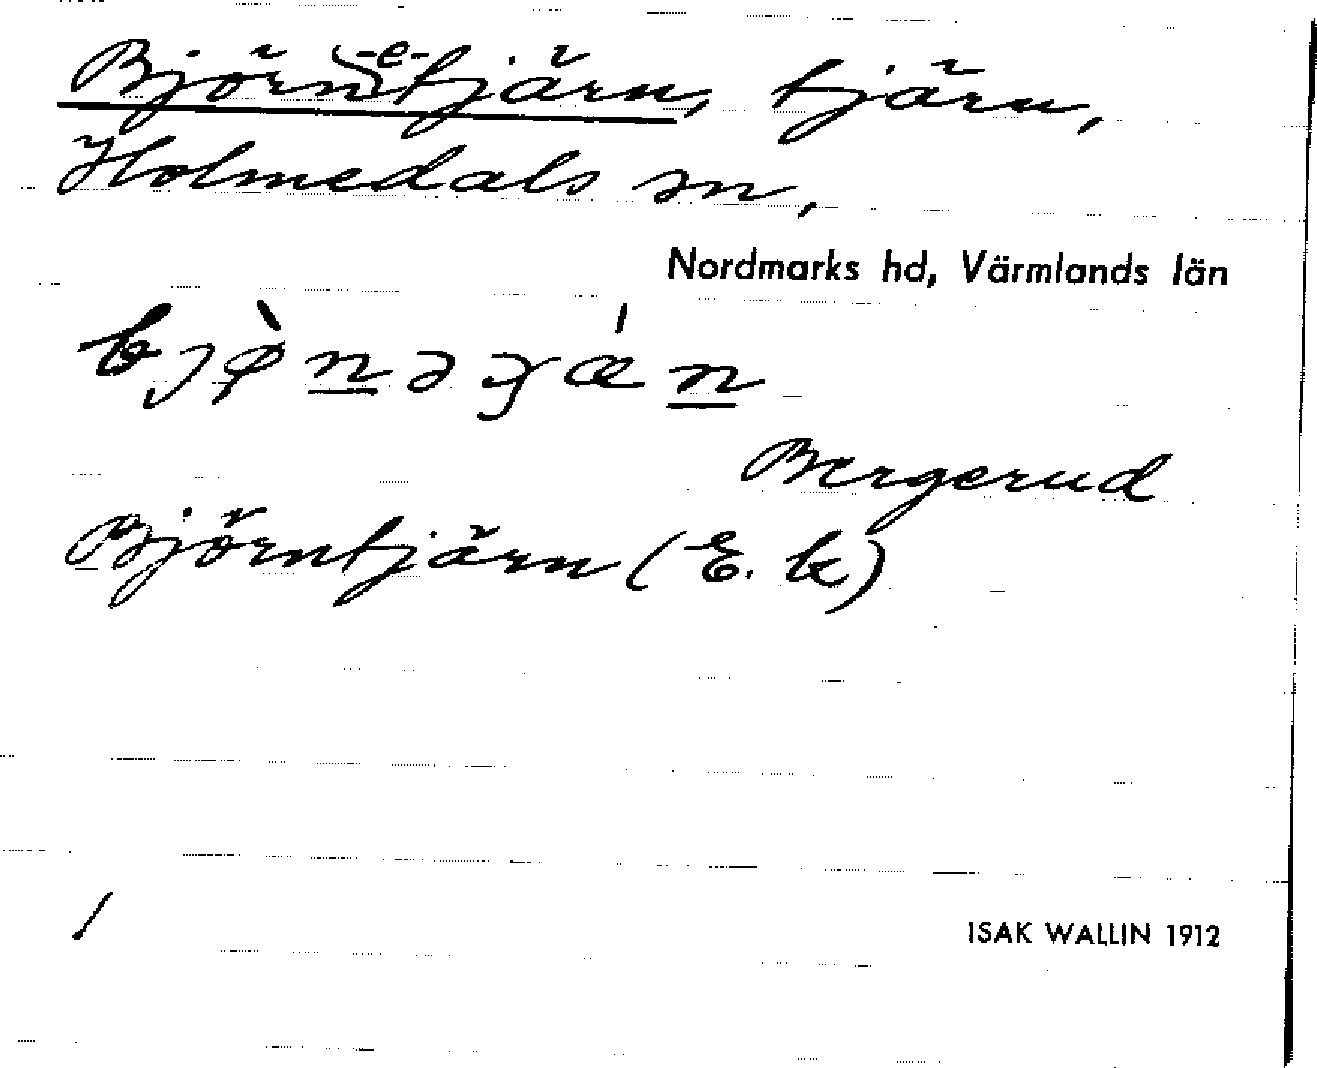 Björn-e-tjärn, tjärn,
Holmedals sn,
Nordmarks hd, Värmlands län
Bergerud
Björntjärn (E. k)
/
ISAK WALLIN 1912